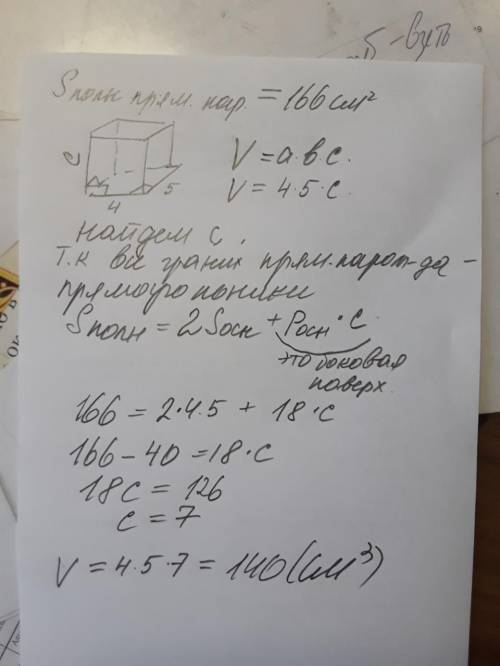 б - вуть
Sполн прям. пар. = 166 см²
c
4
5
V = a·b·c.
V = 4·5·c
найдем c,
Т.к все грани прям.парал-да -
прямоугольники
Sполн = 2Sосн + Pосн · c
это боковая
поверх.
166 = 2·4·5 + 18·c
166 - 40 = 18·c
18c = 126
c = 7
V = 4·5·7 = 140 (см³)